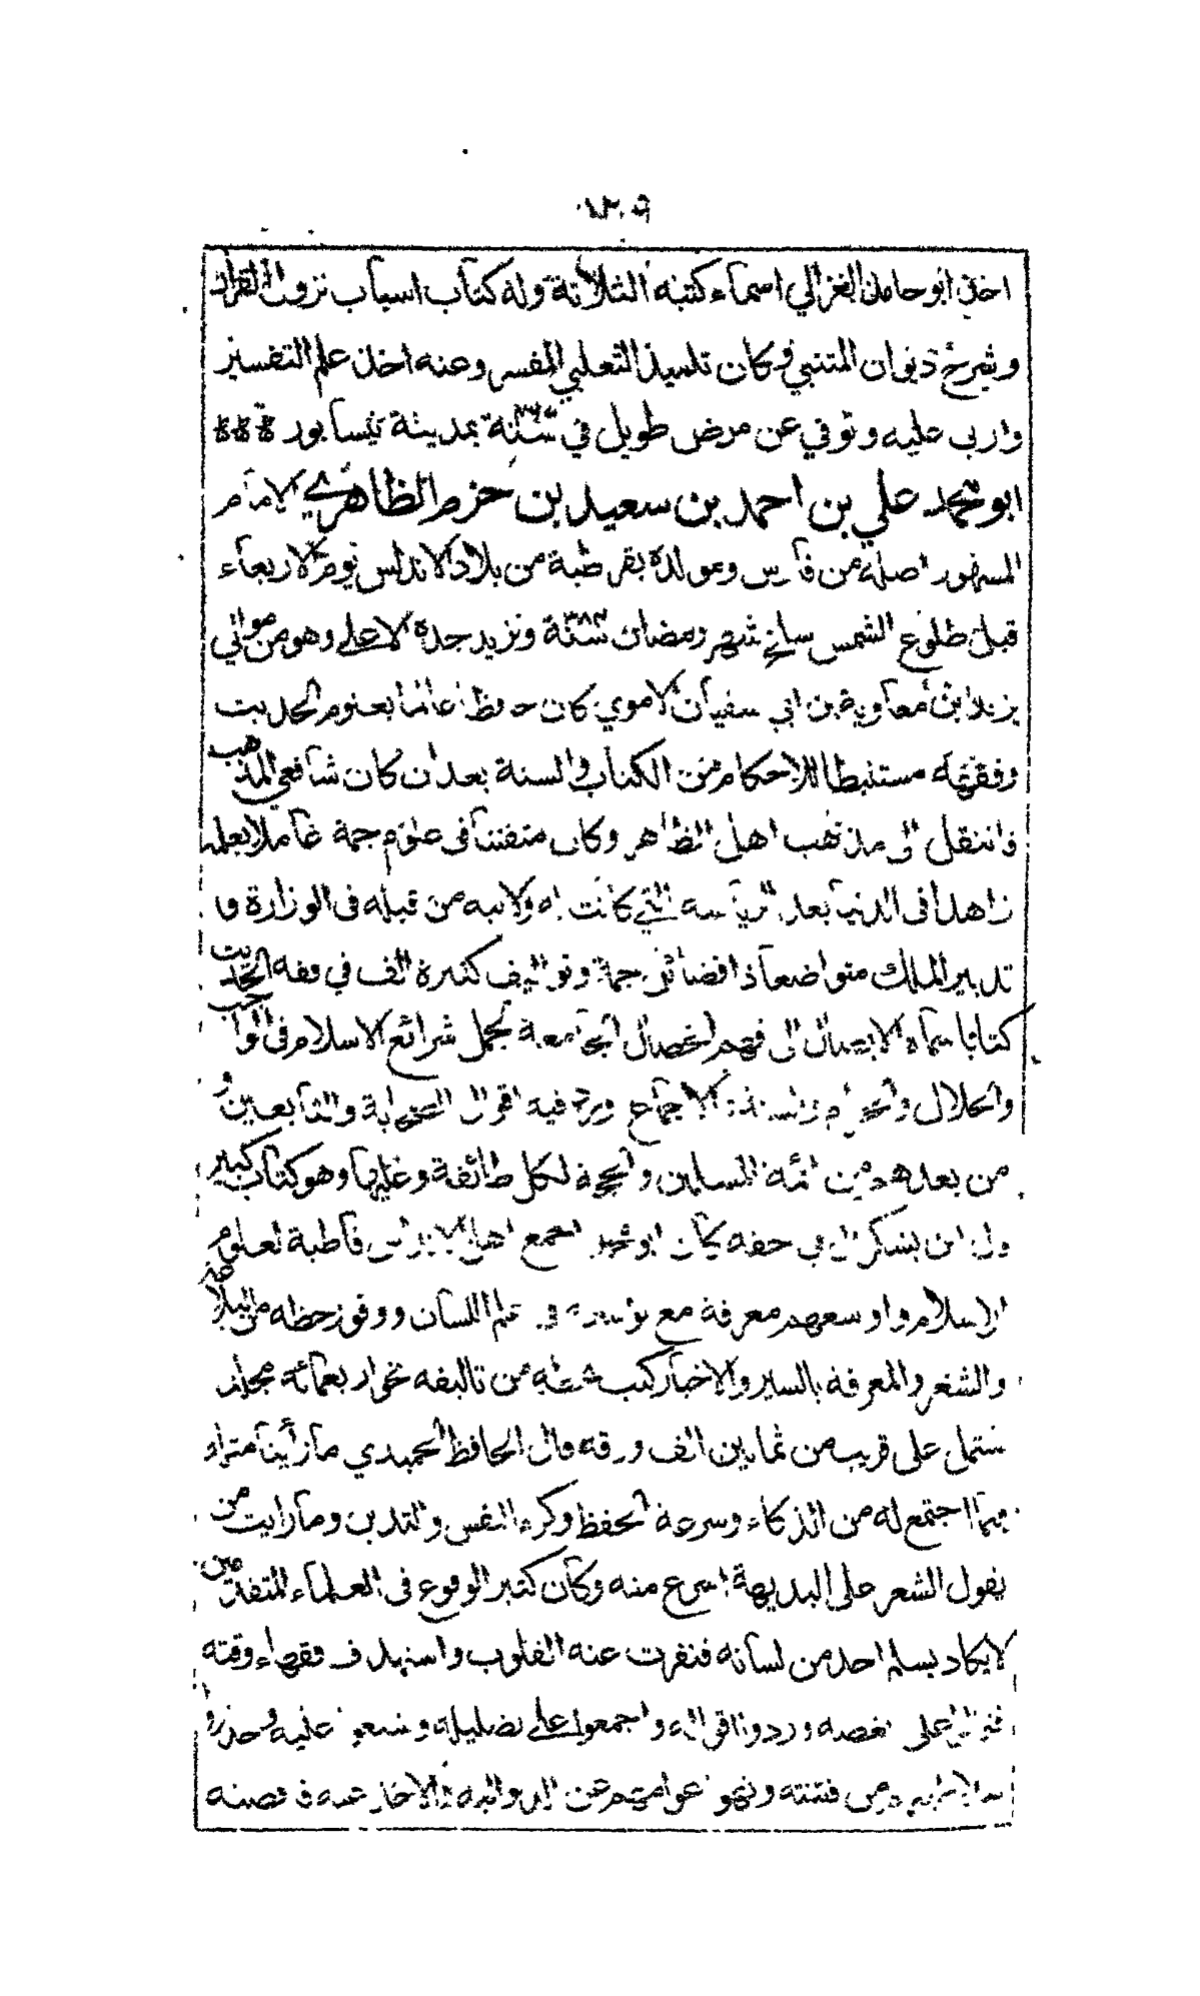 اخذ ابو حامد الغزالي اسماء كتبه الثلاثة وله كتاب اسباب نزول القران
وشرح ديوان المتنبي وكان تلميذ الثعلبي المفسر وعنه اخذ علم التفسير
واربى عليه وتوفي عن مرض طويل في سنة بمدينة نيسابور
ابو محمد علي بن احمد بن سعيد بن حزم الظاهري الامام
المشهور اصله من فارس ومولده بقرطبة من بلاد الاندلس يوم الاربعاء
قبل طلوع الشمس سلخ شهر رمضان سنة ٣٨٣ ويزيد جده الاعلى وهو من موالي
يزيد ابن معاوية بن ابي سفيان الاموي كان حافظا عالما بعلوم الحديث
وفقهه مستنبطا للاحكام من الكتاب والسنة بعد ان كان شافعي المذهب
فانتقل الى مذهب اهل الظاهر وكان متفننا في علوم جمة عاملا بعلمه
زاهدا في الدنيا بعد الرياسه التي كانت له ولابيه من قبله في الوزارة و
تدبير الملك متواضعا ذا فضائل جمة وتواليف كثيرة الف في فقه الحديث
كتابا سماه الايصال الى فهم الخصال الجامعة لجمل شرائع الاسلام في الواجب
والحلال والحرام والسنة والاجماع ورد فيه اقوال الصحابة والتابعين و
من بعدهم من ائمة المسلمين والحجة لكل طائفة وعليها وهو كتاب كبير
وقال ابن بشكوال في حقه كان ابو محمد اجمع اهل الاندلس قاطبة لعلوم
الاسلام واوسعهم معرفة مع توسعه في علم اللسان ووفور حظه من البلاغة
والشعر والمعرفة بالسير والاخبار كتب بخطه من تاليفه نحو اربعمائة مجلد
تشتمل على قريب من ثمانين الف ورقه قال الحافظ الحميدي ما رأينا مثله
فيما اجتمع له من الذكاء وسرعة الحفظ وكرم النفس والتدين وما رايت من
يقول الشعر على البديهة اسرع منه وكان كثير الوقوع في العلماء المتقدمين
لا يكاد يسلم احد من لسانه فنفرت عنه القلوب واستهدف فقهاء وقته
فتمالوا على بغضه وردوا اقواله واجمعوا على تضليله وشنعوا عليه وحذروا
سلاطينهم من فتنته ونهوا عوامهم عن الدنو اليه والاخذ عنه فاقصته